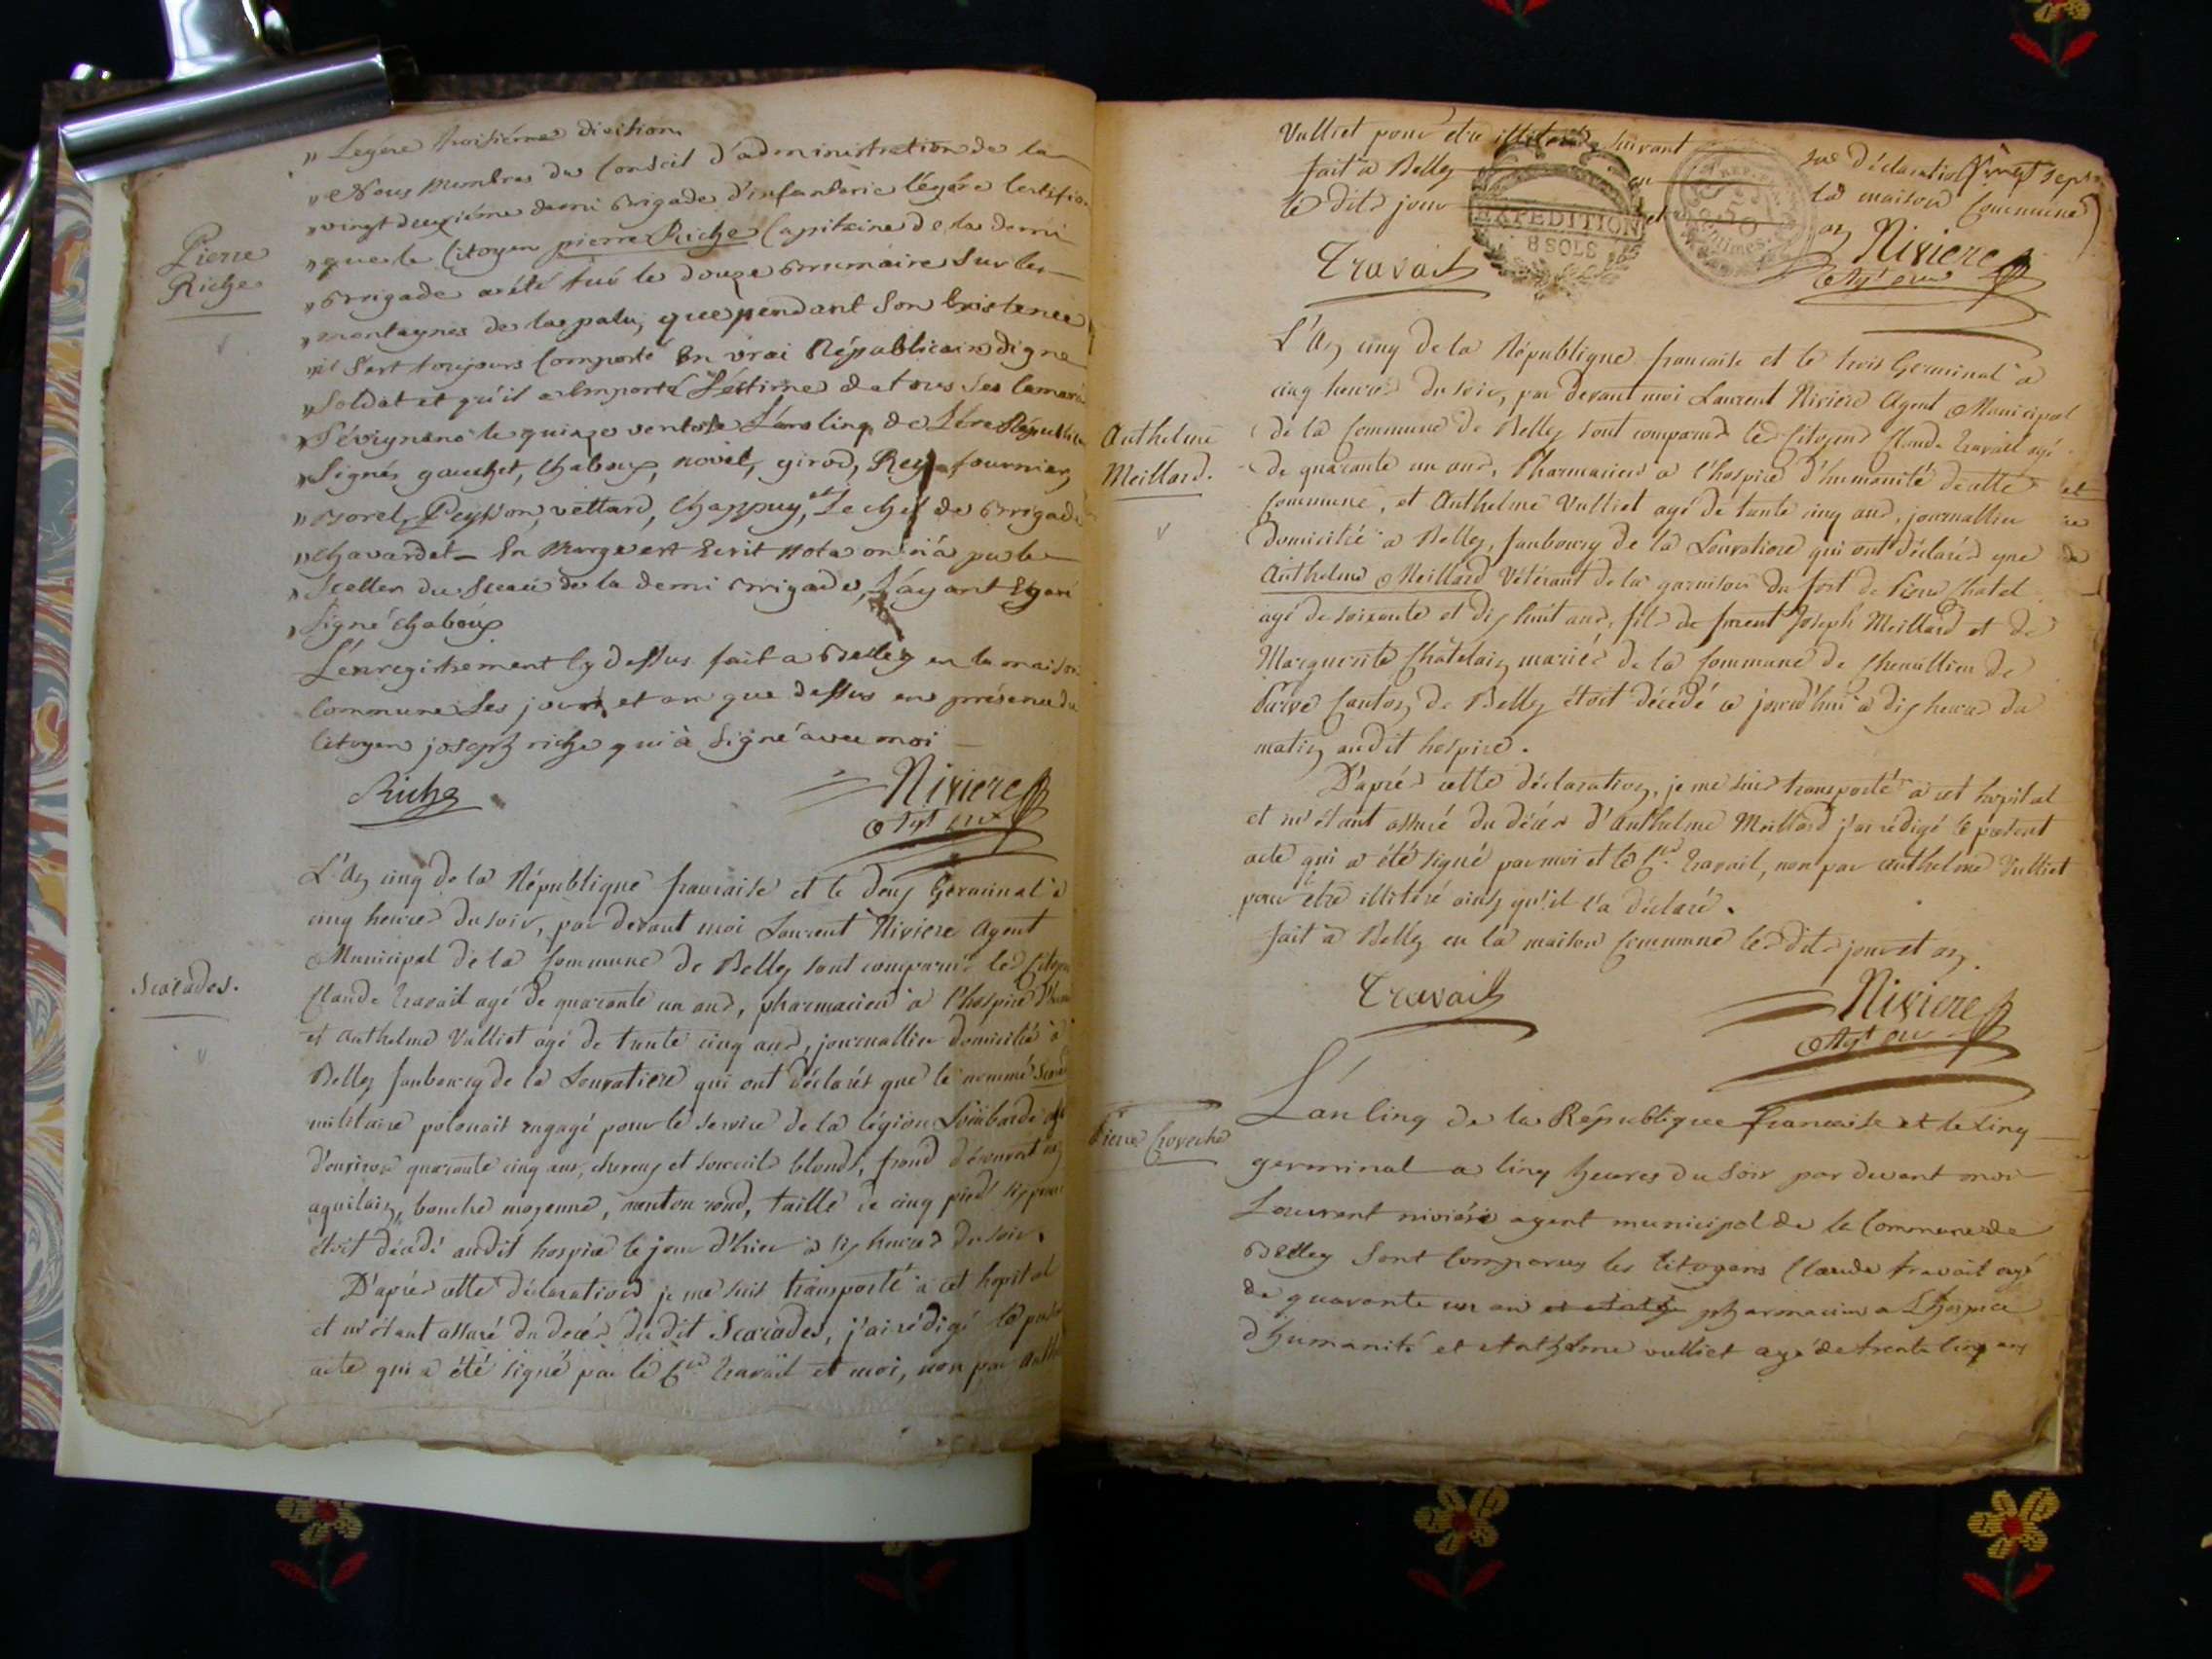 " Legére troisiéme division
" Nous Membres du Conseil d'administration de la
" vingt deuxiéme demi Brigade d'infanterie légére Certifion
Pierre
Riche
" que le Citoyen pierre Riche Capitaine de la demi
" Brigade a été tué le douze Brumaire Sur les
" montagnes de la palu, que pendant Son Existence
" il S'est toujours Comporté En vrai Républicain digne
" Soldat et qu'il a Emporté L'estime de tous Ses Camara
" Sévignano le quinze ventose L'an Cinq de L'ére Républica
" Signés gauchet, Chaboux, novel, girod, Rey, fournier,
" Borel, Peysson, vettard, Chappuy, et Le chef de Brigade
" Chavardet - En Marge est Ecrit Nota on n'a pu le
" Sceller du Sceau de la demi Brigade, L'ayant Egaré
" Signé Chaboux
L'enregistrement Cy dessus fait a Belley en la maison
Commune Les jour et an que dessus en présence du
Citoyen joseph riche qui à Signé avec moi
Riche
Riviere
Agt mu
L'An cinq de la République francaise et le deux Germinal à
cinq heures du soir, par devant moi Laurent Riviere Agent
Municipal de la Commune de Belley sont comparus les Citoyens
Scarades.
Claude Travail agé de quarante un ans, pharmacien à l'hospice d'hum
et Anthelme Vulliet agé de trente cinq ans, journallier domicilié à
Belley faubourg de la Louvatiere qui ont déclarés que le nommé Scarad
militaire polonais engagé pour le service de la légion Lombarde agé
d'environ quarante cinq ans, cheveux et sourcils blonds, front découvert nez
aquilain, bouche moyenne, menton rond, taille de cinq pieds six pouces
étoit décédé audit hospice le jour d'hier à six heures du soir.
D'aprés cette déclaration je me suis transporté à cet hopital
et m'étant assuré du decés du dit Scarades, j'ai rédigé le présent
acte qui a été signé par le Cen Travail et moi, non par Anthe
Vulliet pour etre illiteré suivant sa déclaration vingt sept
fait à Belley en la maison Commune
le dits jour et an
EXPEDITION
8 SOLS
REP. FRA.
50
centimes.
Travail
Riviere
Agt mu
L'An cinq de la République francaise et le trois Germinal à
cinq heures du soir, par devant moi Laurent Riviere Agent Municipal
Anthelme
Meillard.
de la Commune de Belley sont comparus les Citoyens Claude Travail agé
de quarante un ans, Pharmacien à l'hospice d'humanité de cette
Commune, et Anthelme Vulliet agé de trente cinq ans, journallier
domicilié à Belley, faubourg de la Louvatiere qui ont déclarés que
Anthelme Meillard Vétérant de la garnison du fort de Pierre Chatel
agé de soixante et dix huit ans, fils de furent Joseph Meillard et de
Marguerite Châtelain mariés de la Commune de Chemillieu de
Parve Canton de Belley étoit décédé ce jourd'hui à dix heures du
matin audit hospice.
D'aprés cette déclaration, je me suis transporté à cet hopital
et m'étant assuré du décés d'Anthelme Meillard j'ai rédigé le présent
acte qui a été signé par moi et le Cen Travail, non par Anthelme Vulliet
pour etre illiteré ainsy qu'il l'a déclaré.
fait à Belley en la maison Commune les dits jour et an.
Travail
Riviere
Agt mu
L'an Cinq de la République francaise et le Cinq
Pierre
germinal a Cinq heures du Soir par devant moi
Laurent riviére agent municipal de la Commune de
Belley Sont Comparus les Citoyens Claude travail agé
de quarante un an pharmacien a L'hospice
d'humanité et Anthelme vulliet agé de trente Cinq ans